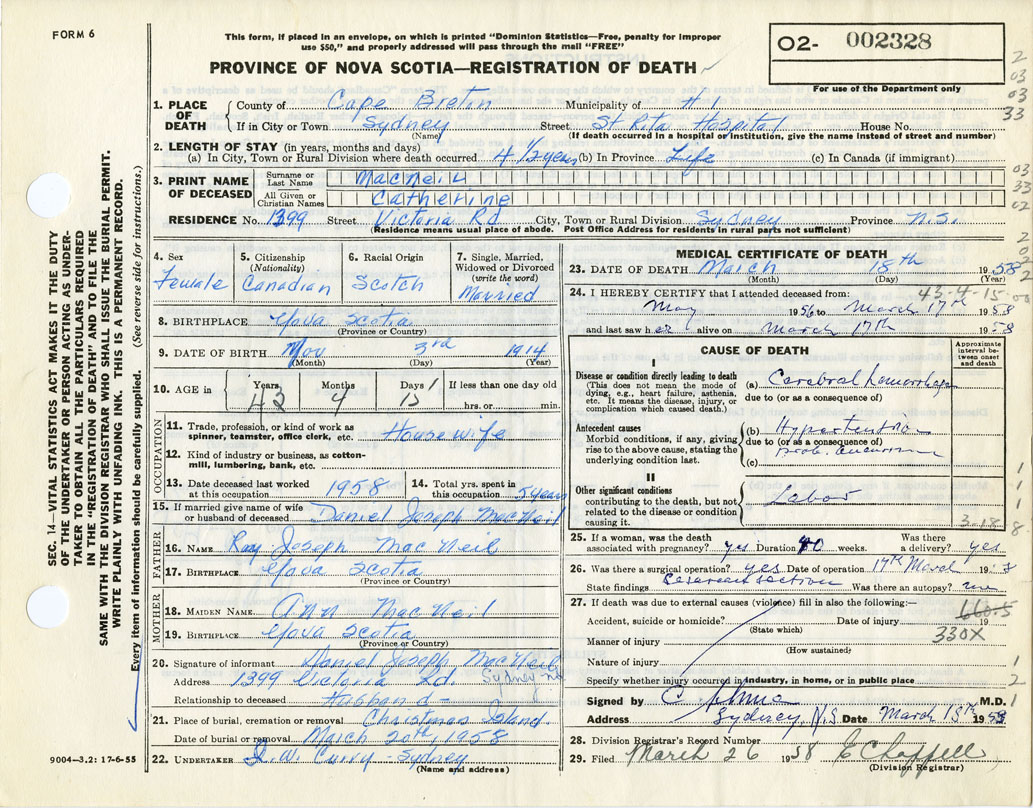 FORM 6
This form, if placed in an envelope, on which is printed "Dominion Statistics—Free, penalty for improper
use $50," and properly addressed will pass through the mail "FREE"
PROVINCE OF NOVA SCOTIA—REGISTRATION OF DEATH
02- 002328
For use of the Department only
1. PLACE OF DEATH { County of Cape Breton Municipality of #1
If in City or Town Sydney Street St Rita Hospital House No.
(Name) (If death occurred in a hospital or institution, give the name instead of street and number)
2. LENGTH OF STAY (in years, months and days)
(a) In City, Town or Rural Division where death occurred 4 1/2 years (b) In Province Life (c) In Canada (if immigrant)
3. PRINT NAME OF DECEASED { Surname or Last Name MacNeil
All Given or Christian Names Catherine
RESIDENCE No. 1399 Street Victoria Rd City, Town or Rural Division Sydney Province N.S.
(Residence means usual place of abode. Post Office Address for residents in rural parts not sufficient)
4. Sex Female
5. Citizenship (Nationality) Canadian
6. Racial Origin Scotch
7. Single, Married, Widowed or Divorced (write the word) Married
8. BIRTHPLACE Nova Scotia
(Province or Country)
9. DATE OF BIRTH Nov 3rd 1914
(Month) (Day) (Year)
10. AGE in Years 43 Months 4 Days 15 If less than one day old hrs. or min.
OCCUPATION
11. Trade, profession, or kind of work as spinner, teamster, office clerk, etc. Housewife
12. Kind of industry or business, as cotton-mill, lumbering, bank, etc.
13. Date deceased last worked at this occupation 1958
14. Total yrs. spent in this occupation 5 years
15. If married give name of wife or husband of deceased Daniel Joseph MacNeil
FATHER
16. NAME Ray Joseph MacNeil
17. BIRTHPLACE Nova Scotia
(Province or Country)
MOTHER
18. MAIDEN NAME Ann MacNeil
19. BIRTHPLACE Nova Scotia
(Province or Country)
20. Signature of informant Daniel Joseph MacNeil
Address 1399 Victoria Rd. Sydney
Relationship to deceased Husband
21. Place of burial, cremation or removal Christmas Island
Date of burial or removal March 20th, 1958
22. UNDERTAKER W. Curry - Sydney
(Name and address)
MEDICAL CERTIFICATE OF DEATH
23. DATE OF DEATH March 18th 1958
(Month) (Day) (Year)
43-4-15
24. I HEREBY CERTIFY that I attended deceased from:
May 1956 to March 17th 1958
and last saw her alive on March 17th 1958
CAUSE OF DEATH
Approximate interval between onset and death
I
Disease or condition directly leading to death
(This does not mean the mode of dying, e.g., heart failure, asthenia, etc. It means the disease, injury, or complication which caused death.)
(a) Cerebral hemorrhage
due to (or as a consequence of)
Antecedent causes
Morbid conditions, if any, giving rise to the above cause, stating the underlying condition last.
(b) Hypertension
due to (or as a consequence of)
Prob. aneurysm
(c)
II
Other significant conditions contributing to the death, but not related to the disease or condition causing it.
Labor
3-18 8
25. If a woman, was the death associated with pregnancy? yes Duration 40 weeks. Was there a delivery? yes
26. Was there a surgical operation? yes Date of operation 17th March 19
State findings Cesarean section Was there an autopsy?
27. If death was due to external causes (violence) fill in also the following:—
Accident, suicide or homicide? Date of injury 19
(State which)
330X
Manner of injury
(How sustained)
Nature of injury
Specify whether injury occurred in industry, in home, or in public place
Signed by M.D.
Address Sydney, N.S. Date March 1958
28. Division Registrar's Record Number
29. Filed March 26 1958 E Chappell
(Division Registrar)
SEC. 14—VITAL STATISTICS ACT MAKES IT THE DUTY
OF THE UNDERTAKER OR PERSON ACTING AS UNDER-
TAKER TO OBTAIN ALL THE PARTICULARS REQUIRED
IN THE "REGISTRATION OF DEATH" AND TO FILE THE
SAME WITH THE DIVISION REGISTRAR WHO SHALL ISSUE THE BURIAL PERMIT.
WRITE PLAINLY WITH UNFADING INK. THIS IS A PERMANENT RECORD.
Every item of information should be carefully supplied. (See reverse side for instructions.)
9004—3.2: 17-6-55